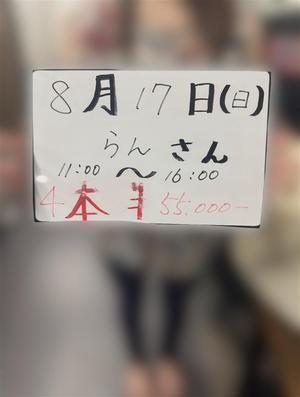 8月17日(日)
らんさん
11:00〜16:00
4本 55.000-